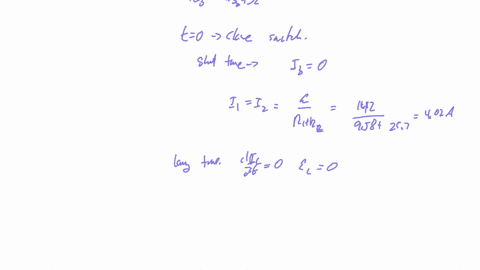 t=0 → close switch.
short time → I_b = 0
I_1 = I_2 = ε / (R_1+R_2) = 142 / (9.58+ 25.7) = 4.02 A
long time. dI_L/dt = 0 ε_L = 0